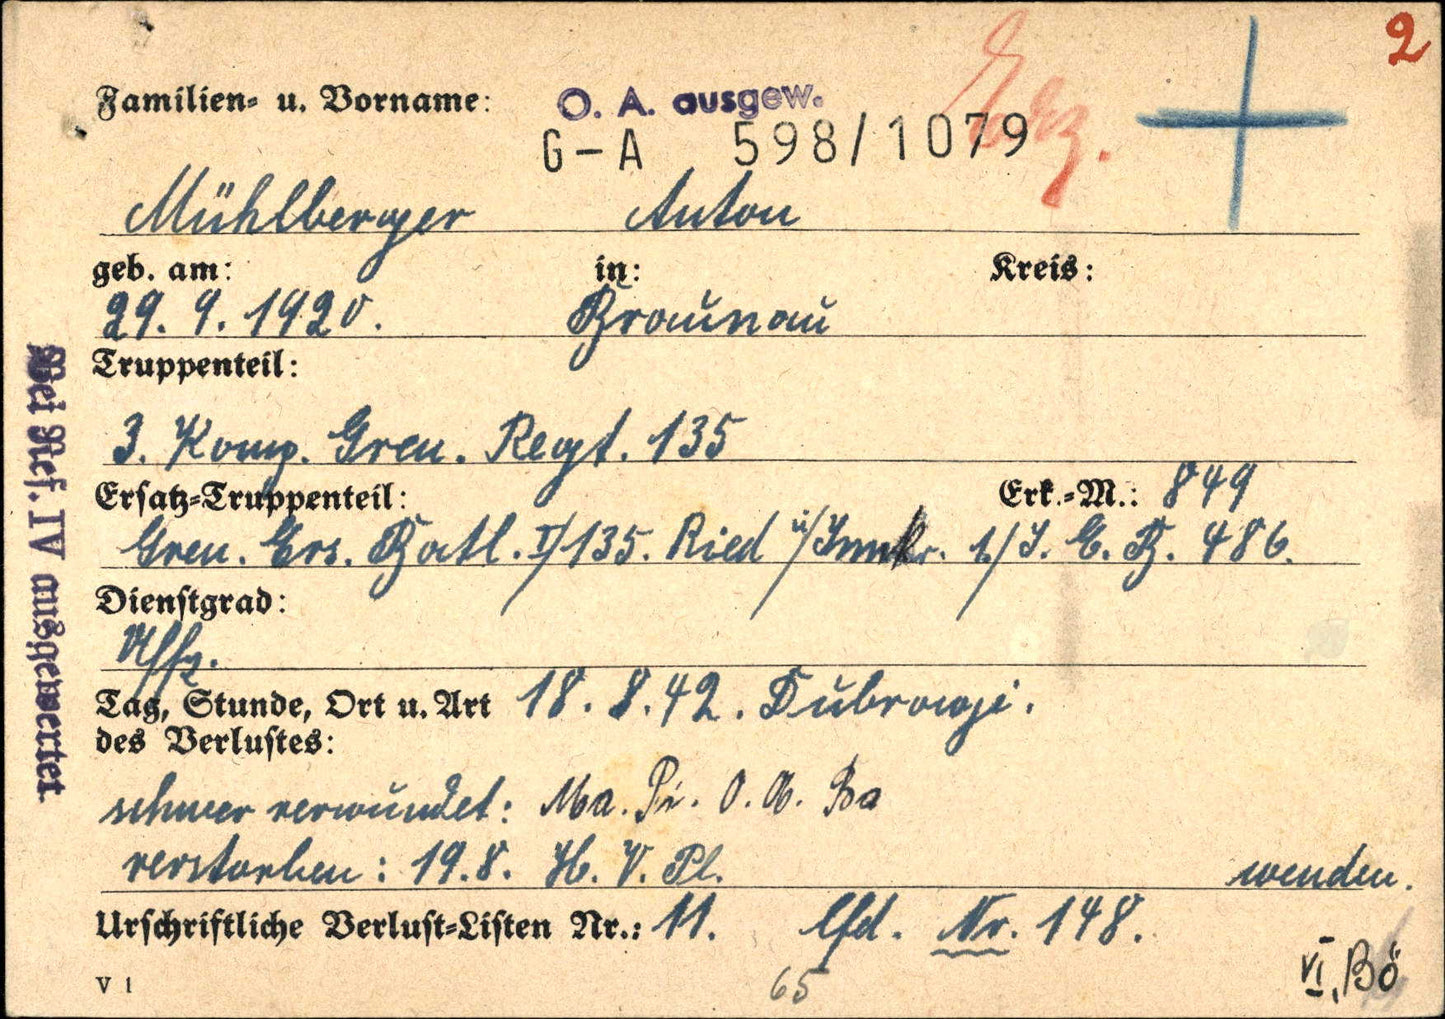 2
Familien- u. Vorname:
O. A. ausgew.
G-A 598/1079
Mühlberger Anton
geb. am: in: Kreis:
29. 9. 1920. Braunau
Truppenteil:
3. Komp. Gren. Regt. 135
Ersatz-Truppenteil: Erk.-M.: 849
Gren. Ers. Batl. I/135. Ried i/Innkr. 1./I. E. B. 486.
Dienstgrad:
Uffz.
Tag, Stunde, Ort u. Art 18. 8. 42.
des Verlustes:
schwer verwundet: Ma. Pi.
verstorben: 19. 8. H. V. Pl. wenden.
Urschriftliche Verlust-Listen Nr.: 11. lfd. Nr. 148.
V 1
65
VI, Bö
Bei Ref. IV ausgewertet